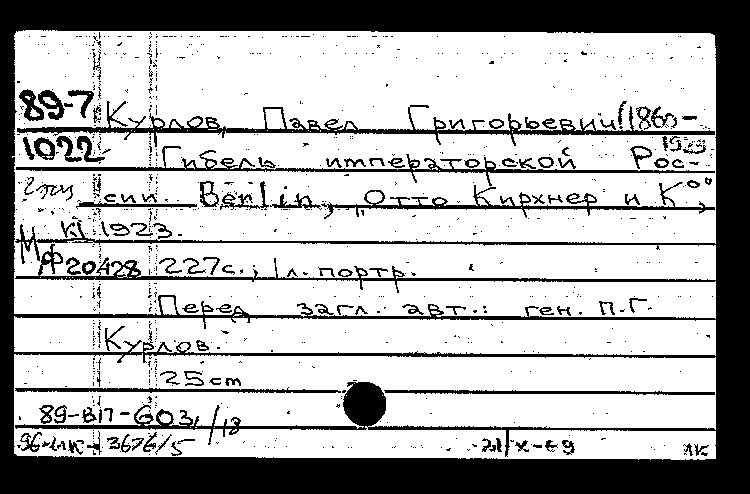 89-7 Курлов, Павел Григорьевич (1860-
1022 1923
Гибель императорской Рос-
2 экз сии. Berlin, „Отто Кирхнер и К°",
1923.
Мф 20428 227с.; 1 л. портр.
Перед загл. авт.: ген. П.Г.
Курлов.
25cm
89-ВП-603/18
96-МК-3676/5 21/X-69